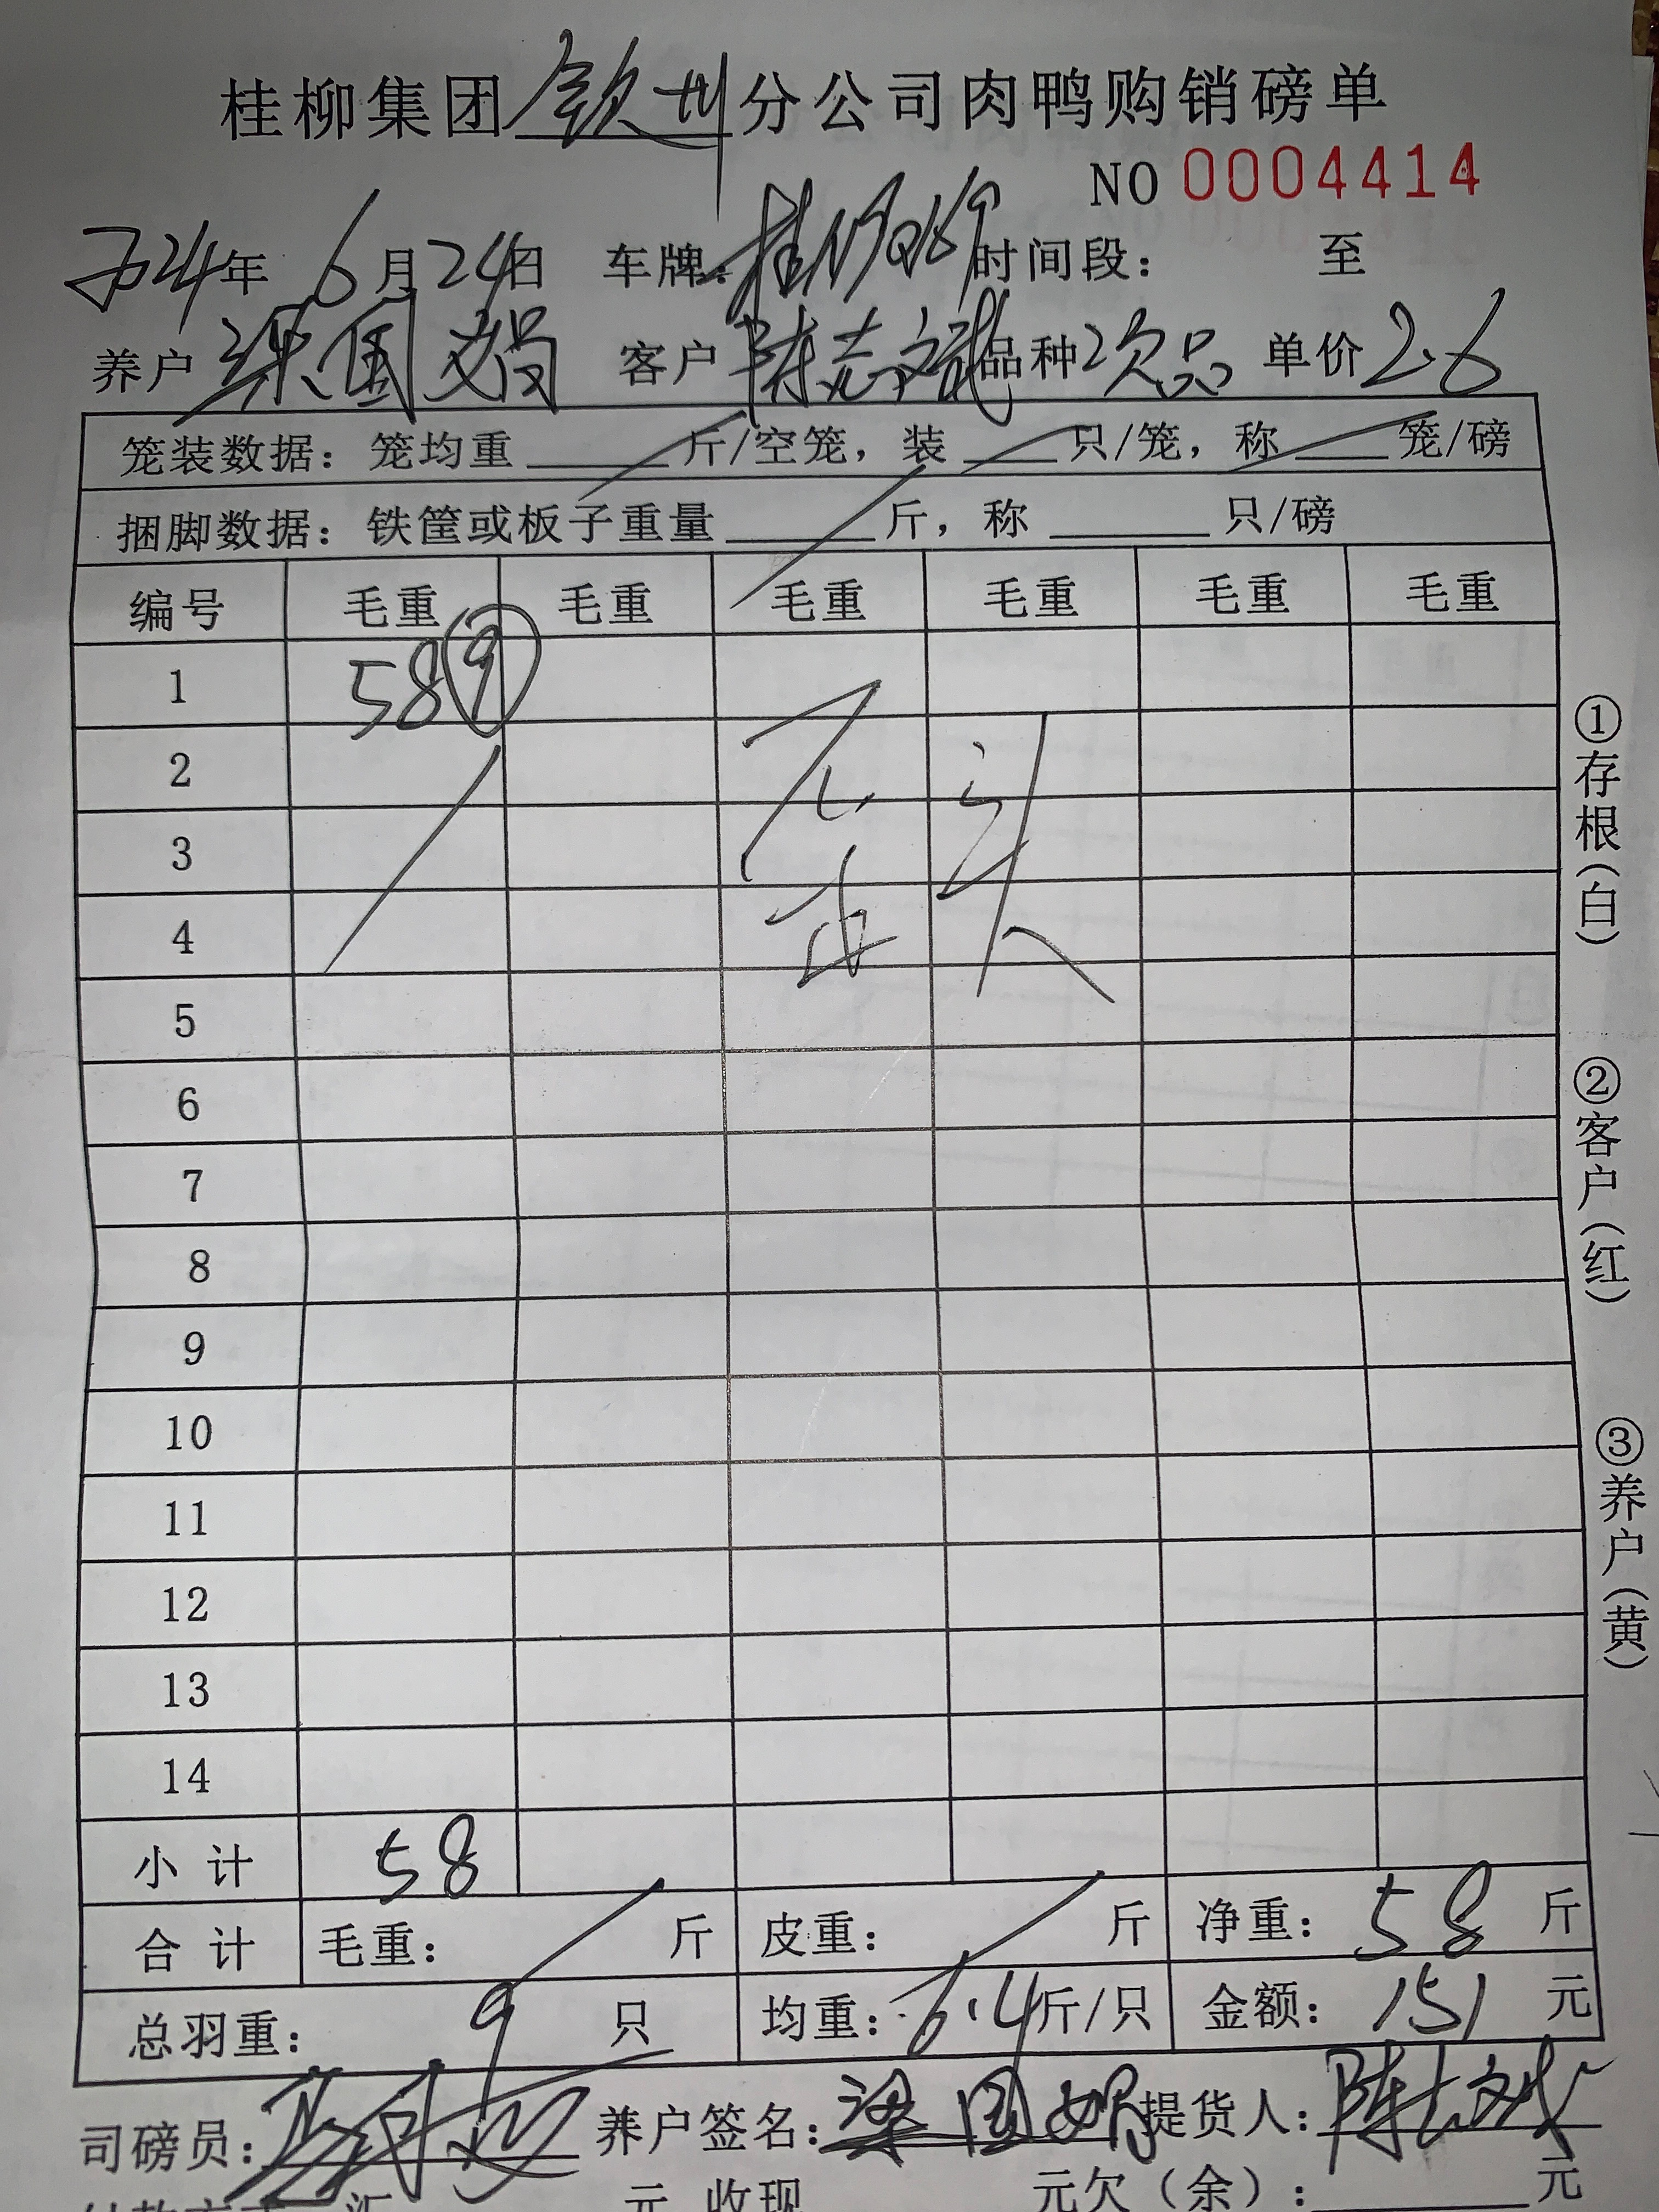 桂柳集团钦州分公司肉鸭购销磅单
NO 0004414
2024年 6月24日 车牌: 时间段: 至
养户 梁国娟 客户 陈志斌 品种 次品 单价 2.6
笼装数据: 笼均重 斤/空笼, 装 只/笼, 称 笼/磅
捆脚数据: 铁筐或板子重量 斤, 称 只/磅
编号 毛重 毛重 毛重 毛重 毛重 毛重
1 58 9
2
3
4
5
6
7
8
9
10
11
12
13
14
小计 58
合计 毛重: 斤 皮重: 斤 净重: 58 斤
总羽重: 9 只 均重: 6.4 斤/只 金额: 151 元
司磅员: 养户签名: 梁国娟 提货人: 陈志斌
元 收现 元欠(余): 元
①存根(白)
②客户(红)
③养户(黄)